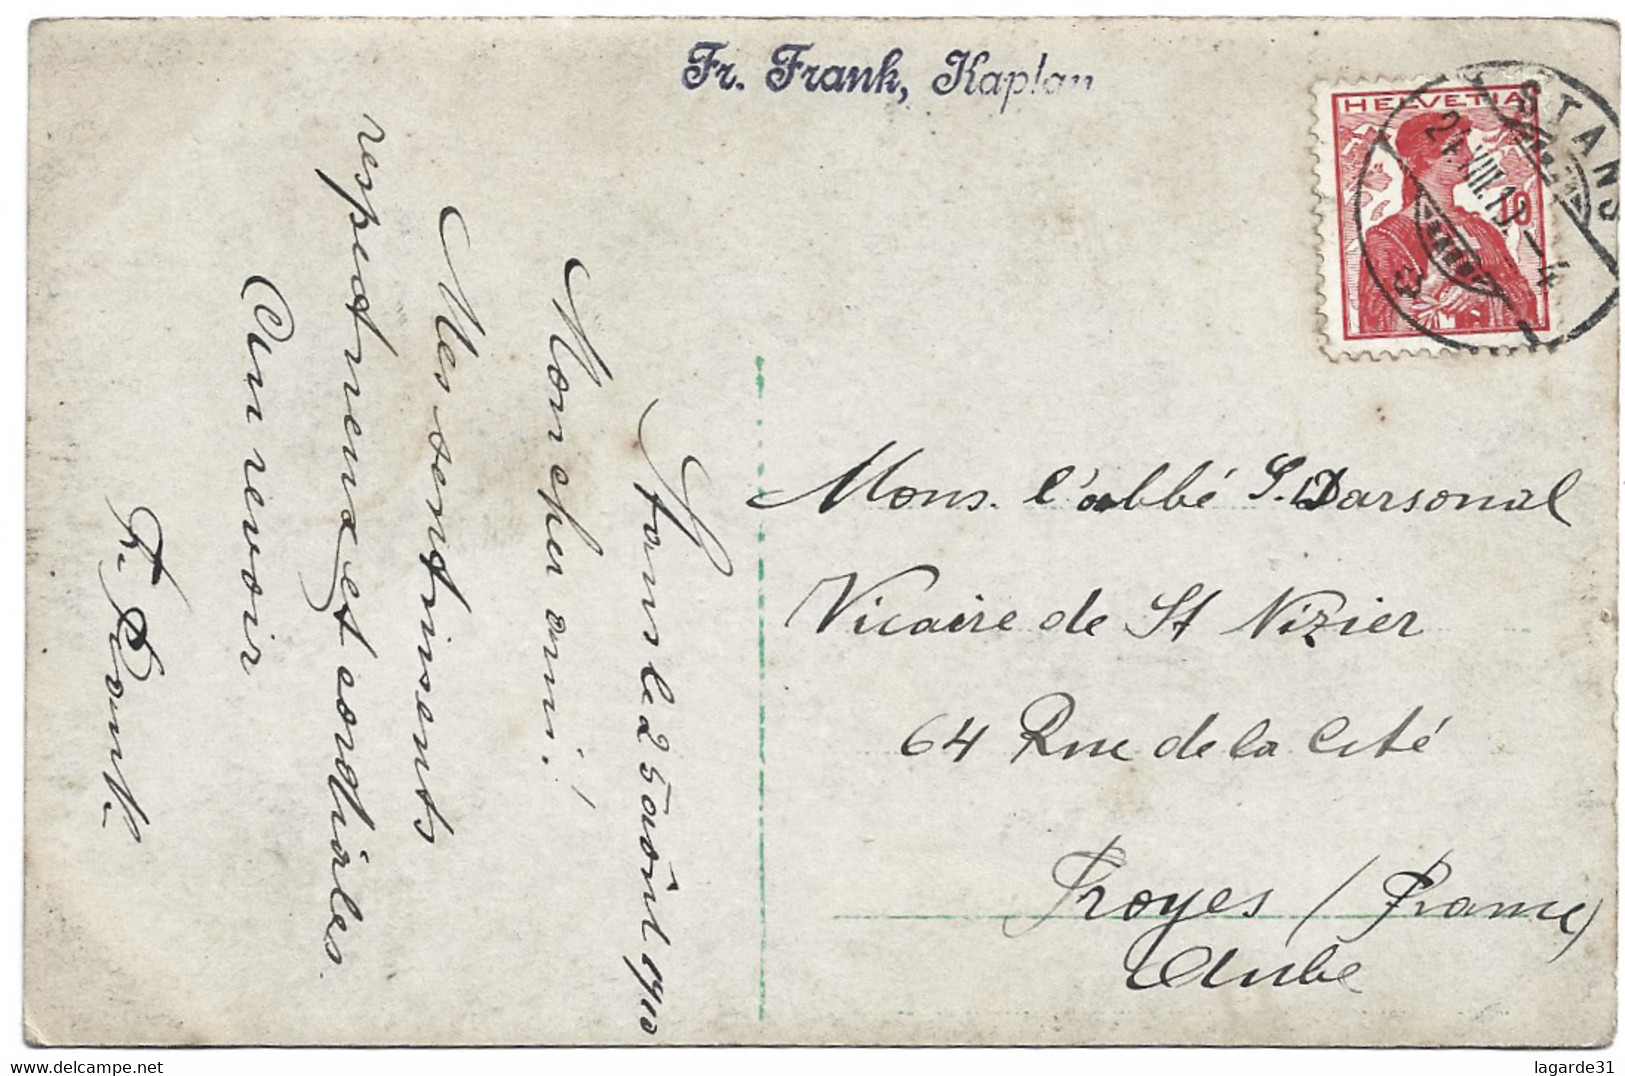 Fr. Frank, Kaplan
HELVETIA
10
STANS
Stans le 25 août 1910
Mon cher ami!
Mes sentiments
respectueux et cordiales.
Au revoir
Fr. Frank.
Mons. l'abbé S. Darsonval
Vicaire de St Nizier
64 Rue de la Cité
Troyes (France)
Aube
lagarde31